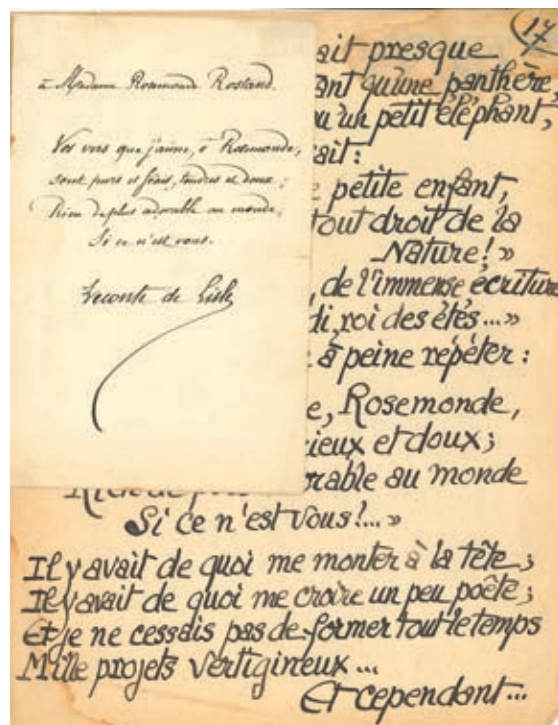 à Madame Rosemonde Rostand.
Vos vers que j'aime, ô Rosemonde,
sont purs et frais, tendres et doux ;
Rien de plus adorable au monde,
Si ce n'est vous.
Leconte de Lisle
17
ait presque
ant qu'une panthère,
u'un petit éléphant,
ait :
e petite enfant,
tout droit de la
Nature ! »
, de l'immense écriture
di, roi des étés... »
à peine répéter :
e, Rosemonde,
ieux et doux ;
rable au monde
Si ce n'est vous !... »
Il y avait de quoi me monter à la tête ;
Il y avait de quoi me croire un peu poête ;
Et je ne cessais pas de former tout le temps
Mille projets vertigineux...
Et cependant...